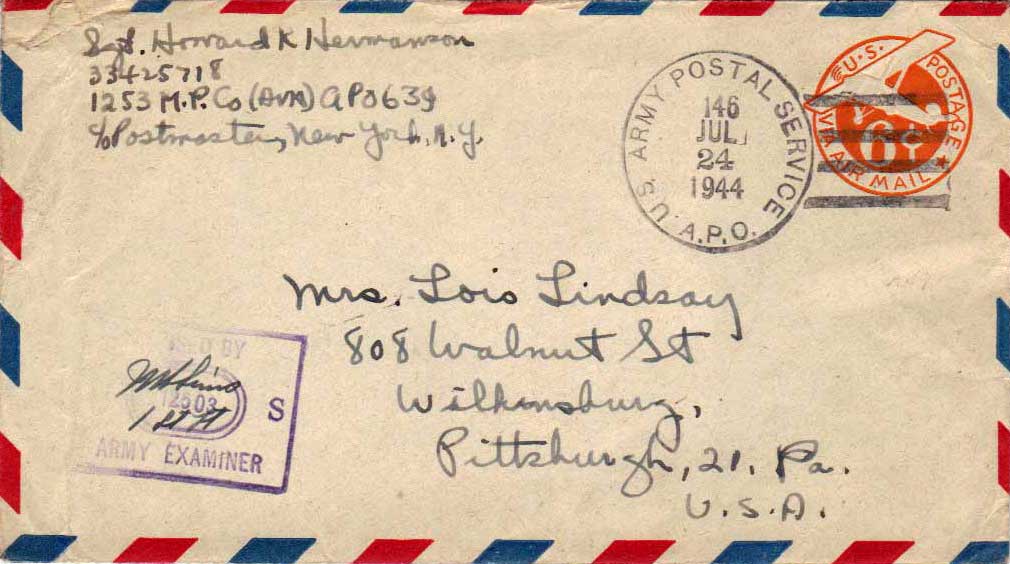 Sgt. Howard K Hermanson
33425718
1253 M.P. Co (Avn) APO 639
c/o Postmaster, New York, N.Y.
U.S. ARMY POSTAL SERVICE
146
JUL
24
1944
A.P.O.
U.S. POSTAGE
6¢
VIA AIR MAIL
Mrs. Lois Lindsay
808 Walnut St
Wilkinsburg,
Pittsburgh, 21, Pa.
U.S.A.
D BY
12503
S
1st Lt
ARMY EXAMINER